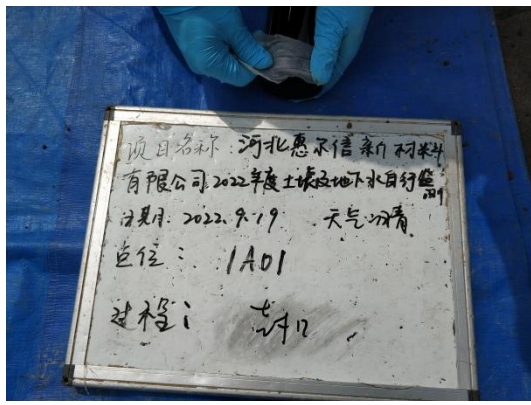 项目名称:河北惠尔信新材料
有限公司2022年度土壤及地下水自行监测
日期:2022.9.19 天气:晴
点位:1A01
过程:封口